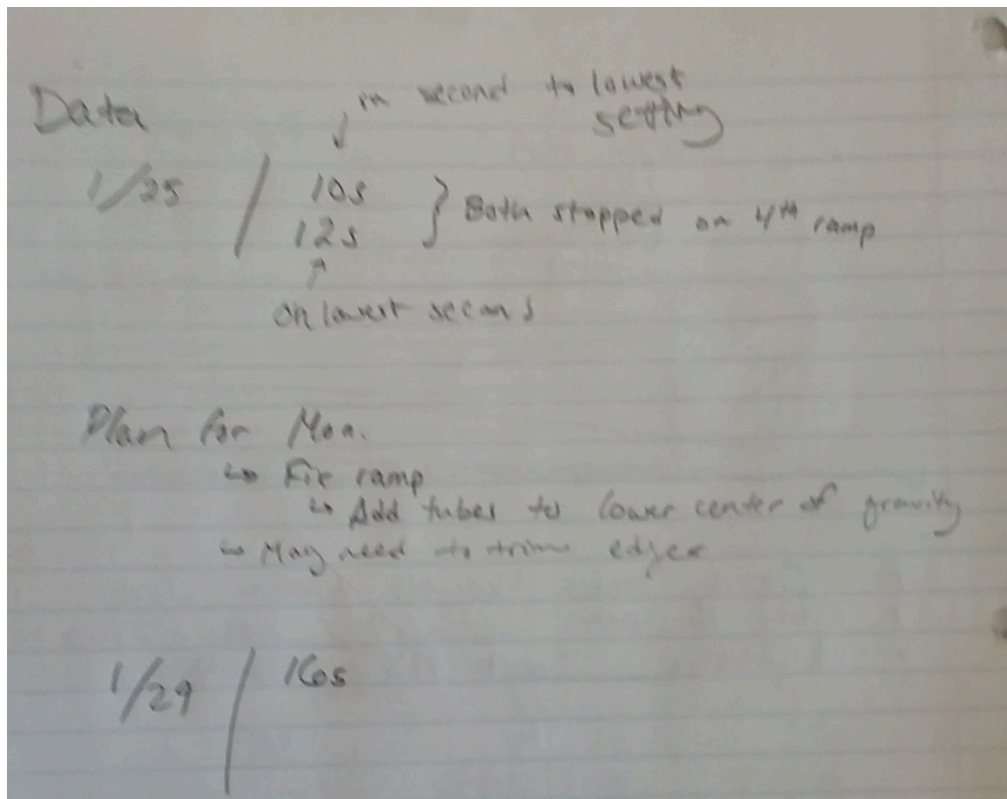 on second to lowest
setting
Data
1/25 10s
12s
} Both stopped on 4th ramp
on lowest second
Plan for Mon.
↳ Fix ramp
↳ Add tubes to lower center of gravity
↳ May need to trim edges
1/29 16s